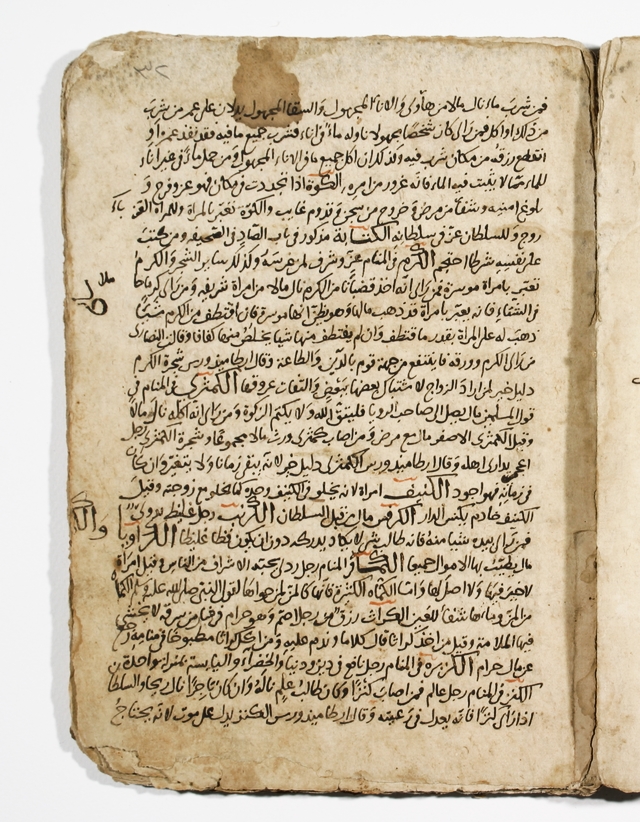 فمن شرب ماء نال مالا من هاوى والاناء المجهول والسقا المجهول يدلان على عمر من شرب
من ذلك او اكل فمن راى كان شخصا مجهولا ناوله ماء في اناء فشرب جميع ما فيه فقد نفد عمره او
انقطع رزقه من مكان شرب فيه وكذلك ان اكل جميع ما في الاناء المجهول ومن حمل ماء في غير اناء
للماء مما لا يثبت فيه الماء فانه غرور من امره الكوة اذا تجددت في مكان فهو عز وفرج و
بلوغ امنية وشفاء من مرض وخروج من سجن وقدوم غايب والكوة تعبر بالمراة وللمراة العزباء
زوج وللسلطان عز في سلطانه الكتابة مذكور في باب الصاد في الصحيفة ومن كتب
على نفسه شرطا احتجم الكرم في المنام عز وشرف لمن غرسه وكذلك ساير الشجر والكرم
تعبر بامراة موسرة فمن راى انه اخذ قضبانا من الكرم نال مالا من امراة شريفة ومن راى كرما
في الشتاء فانه يعبر بامراة قد ذهب مالها وهو يظن انها موسرة فان اقتطف من الكرم عنبا
ذهب له على المراة بقدر ما قتطف وان لم يقتطف منها شيا يخلص منها كفافا وقالت النصارى
من راى الكرم وورقه فاينتفع من جهة قوم بالدين والطاعة وقال ارطاميدورس شجرة الكرم
دليل خير لمن اراد الزواج لاشتباك بعضها ببعض والتفات عروقها الكمثرى في المنام في
قول المسلمين مال يصل الى صاحب الرويا فليتق الله ولا يكتم الزكوة ومن راى انه اكله نال مالا
وقيل الكمثرى الاصفر مال مع مرض ومن اصاب كمثرى ورث مالا مجموعا وشجرة الكمثرى رجل
اعجمي يدارى اهله وقال ارطاميدورس الكمثرى دليل خير لانه يبقى زمانا ولا يتغير وان كان
في زمانه فهو اجود الكنيف امراة لانه يخلو في الكنيف وحده كما يخلو مع زوجته وقيل
الكنيف خادم يكنس الدار الكرفس مال من قبل السلطان الكرنب رجل غليظ بدوي
فمن راى بيده شيا منه فانه طالب شي لا يكاد يدركه دون ان يكون فظا غليظا الكراويا
مال يطيب بها الاموال جميعا الكماة في المنام رجل رذل يحبه الاشراف من الناس وقيل امراة
لا خير فيها ولا اصل لها واما الكماه الكثيرة فانها كالمن لمن حواها لقول النبي صلى الله عليه وسلم الكماة
من المن وماءها شفاء للعين الكراث رزق من رجل اصم وهو حرام في خبار مسرقة لا يخشى
فيها الملامة وقيل من اخذ كراثا قال كلاما وندم عليه ومن اكل كراثا مطبوخا في منامه رجع
عن مال حرام الكزبرة في المنام رجل نافع في دين ودنيا والخضراء واليابسة بمنزلة واحدة
الكنز في المنام رجل عالم فمن اصاب كنزا وكان طالب علم ناله وان كان تاجرا نال ربحا والسلطان
اذا راى كنزا فانه يعدل في رعيته وقال ارطاميدورس الكنز يدل على موت لانه يحتاج